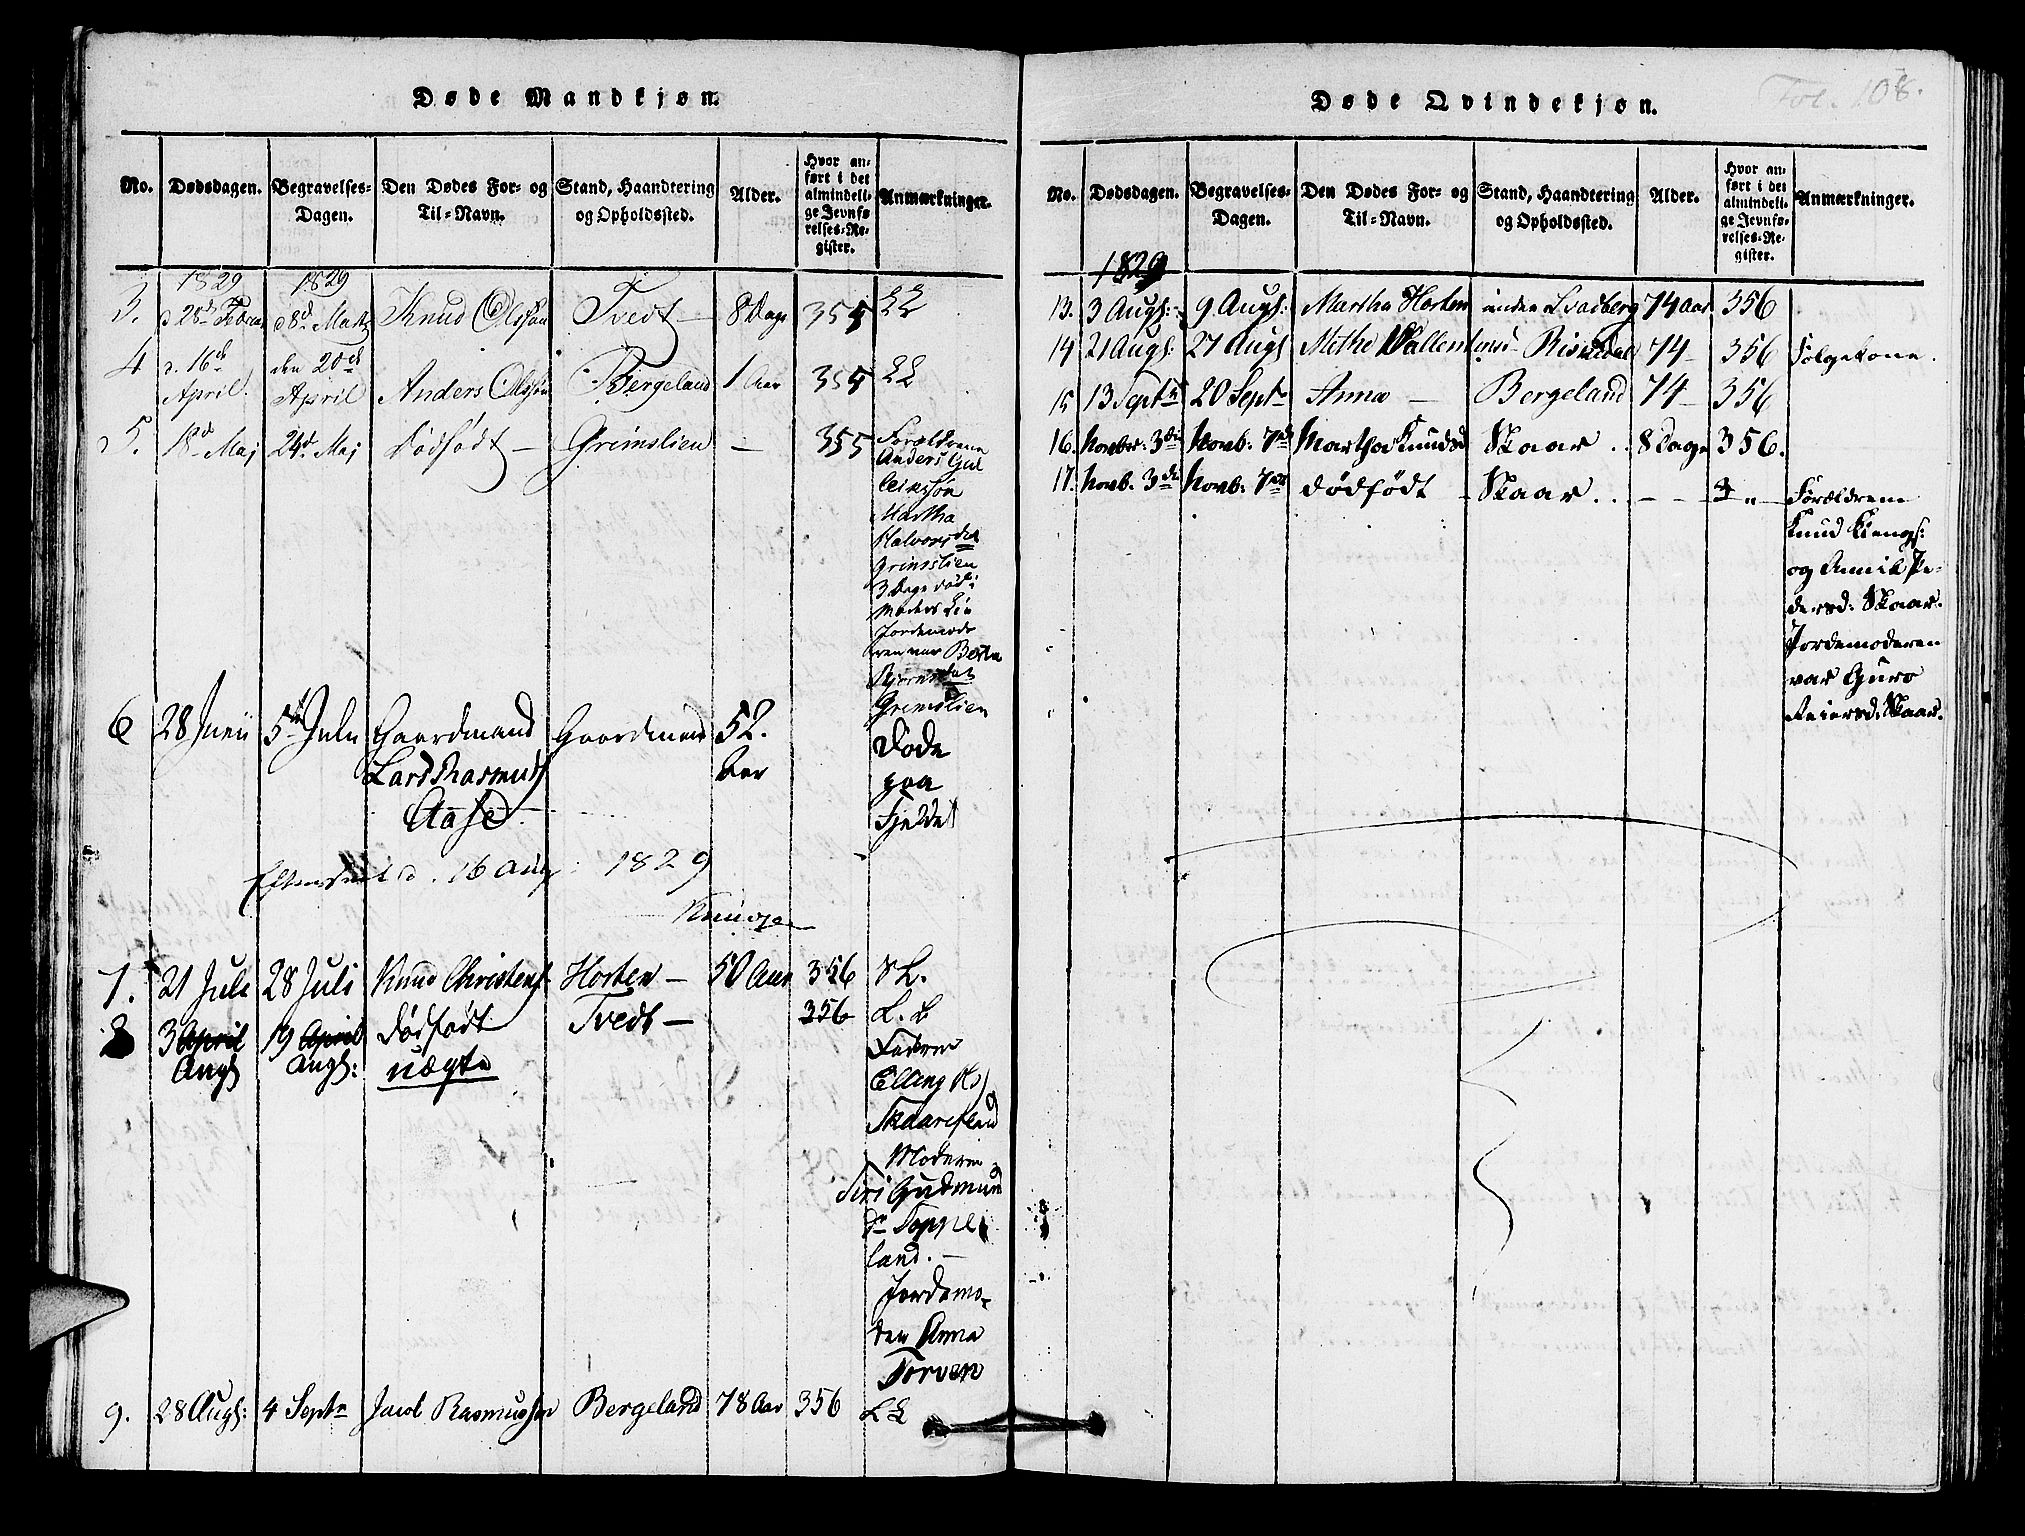 Døde Mandkjøn.
No. Dødsdagen. Begravelses-Dagen. Den Dødes For- og Til-Navn. Stand, Haandtering og Opholdssted. Alder. Hvor anført i det almindelige Jevnførelses-Register. Anmærkninger.
1829 1829
3. d. 28de Februar d 8d. Martz Knud Olsson Tvedt 8 Dage 355
4 d. 16de April den 20de April Anders Olsson Bergeland 1 Aar 355
5. 18d Maj 24d. Maj Dødfødt Grimslien 355 Forældrene
Anders Gul
leiksson
Martha
Halvorsdtr
Grimslien
3 Dage død i
Moders Liv
Jordemode
ren var Berta
Bjørnsdatr
Grimslien
6 28 Junii 5te Julii Gaardmand Gaardmand 52. Døde
Lars Rasmuss Aar paa
Aase Fjeldet
d. 16 Aug: 1829
7. 21 Juli 28 Juli Knud Christens Horten 50 Aar 356
8 3 April 19 April Dødfødt Tvedt 356
Augs Augs: uægte Faderen
Elling
Skaareland
Moderen
Siri Gudmund
dr Toppe
land.
Jordemo-
den Anna
Torven
9. 28 Augs: 4 Septr Jacob Rasmusson Bergeland 78 Aar 356
Døde Qvindekjøn.
Fol. 108.
No. Dødsdagen. Begravelses-Dagen. Den Dødes For- og Til-Navn. Stand, Haandtering og Opholdssted. Alder. Hvor anført i det almindelige Jevnførelses-Register. Anmærkninger.
1829
13. 3 Augs: 9 Augs: Martha Horten under Svadberg 74 aar 356
14 21 Augs: 27 Augs Methe 74 356 Følgekone.
15 13 Septr 20 Septr Anna Bergeland 74 356
16. Novbr: 3die Novb: 7de Martha Knudsd Skaar 8 Dage 356.
17. Novb. 3die Novb: 7de Dødfødt Skaar Forældrene
Knud
og Pe-
dersd: Skaar.
Jordemoderen
var Guro
Reiersd: Skaar.